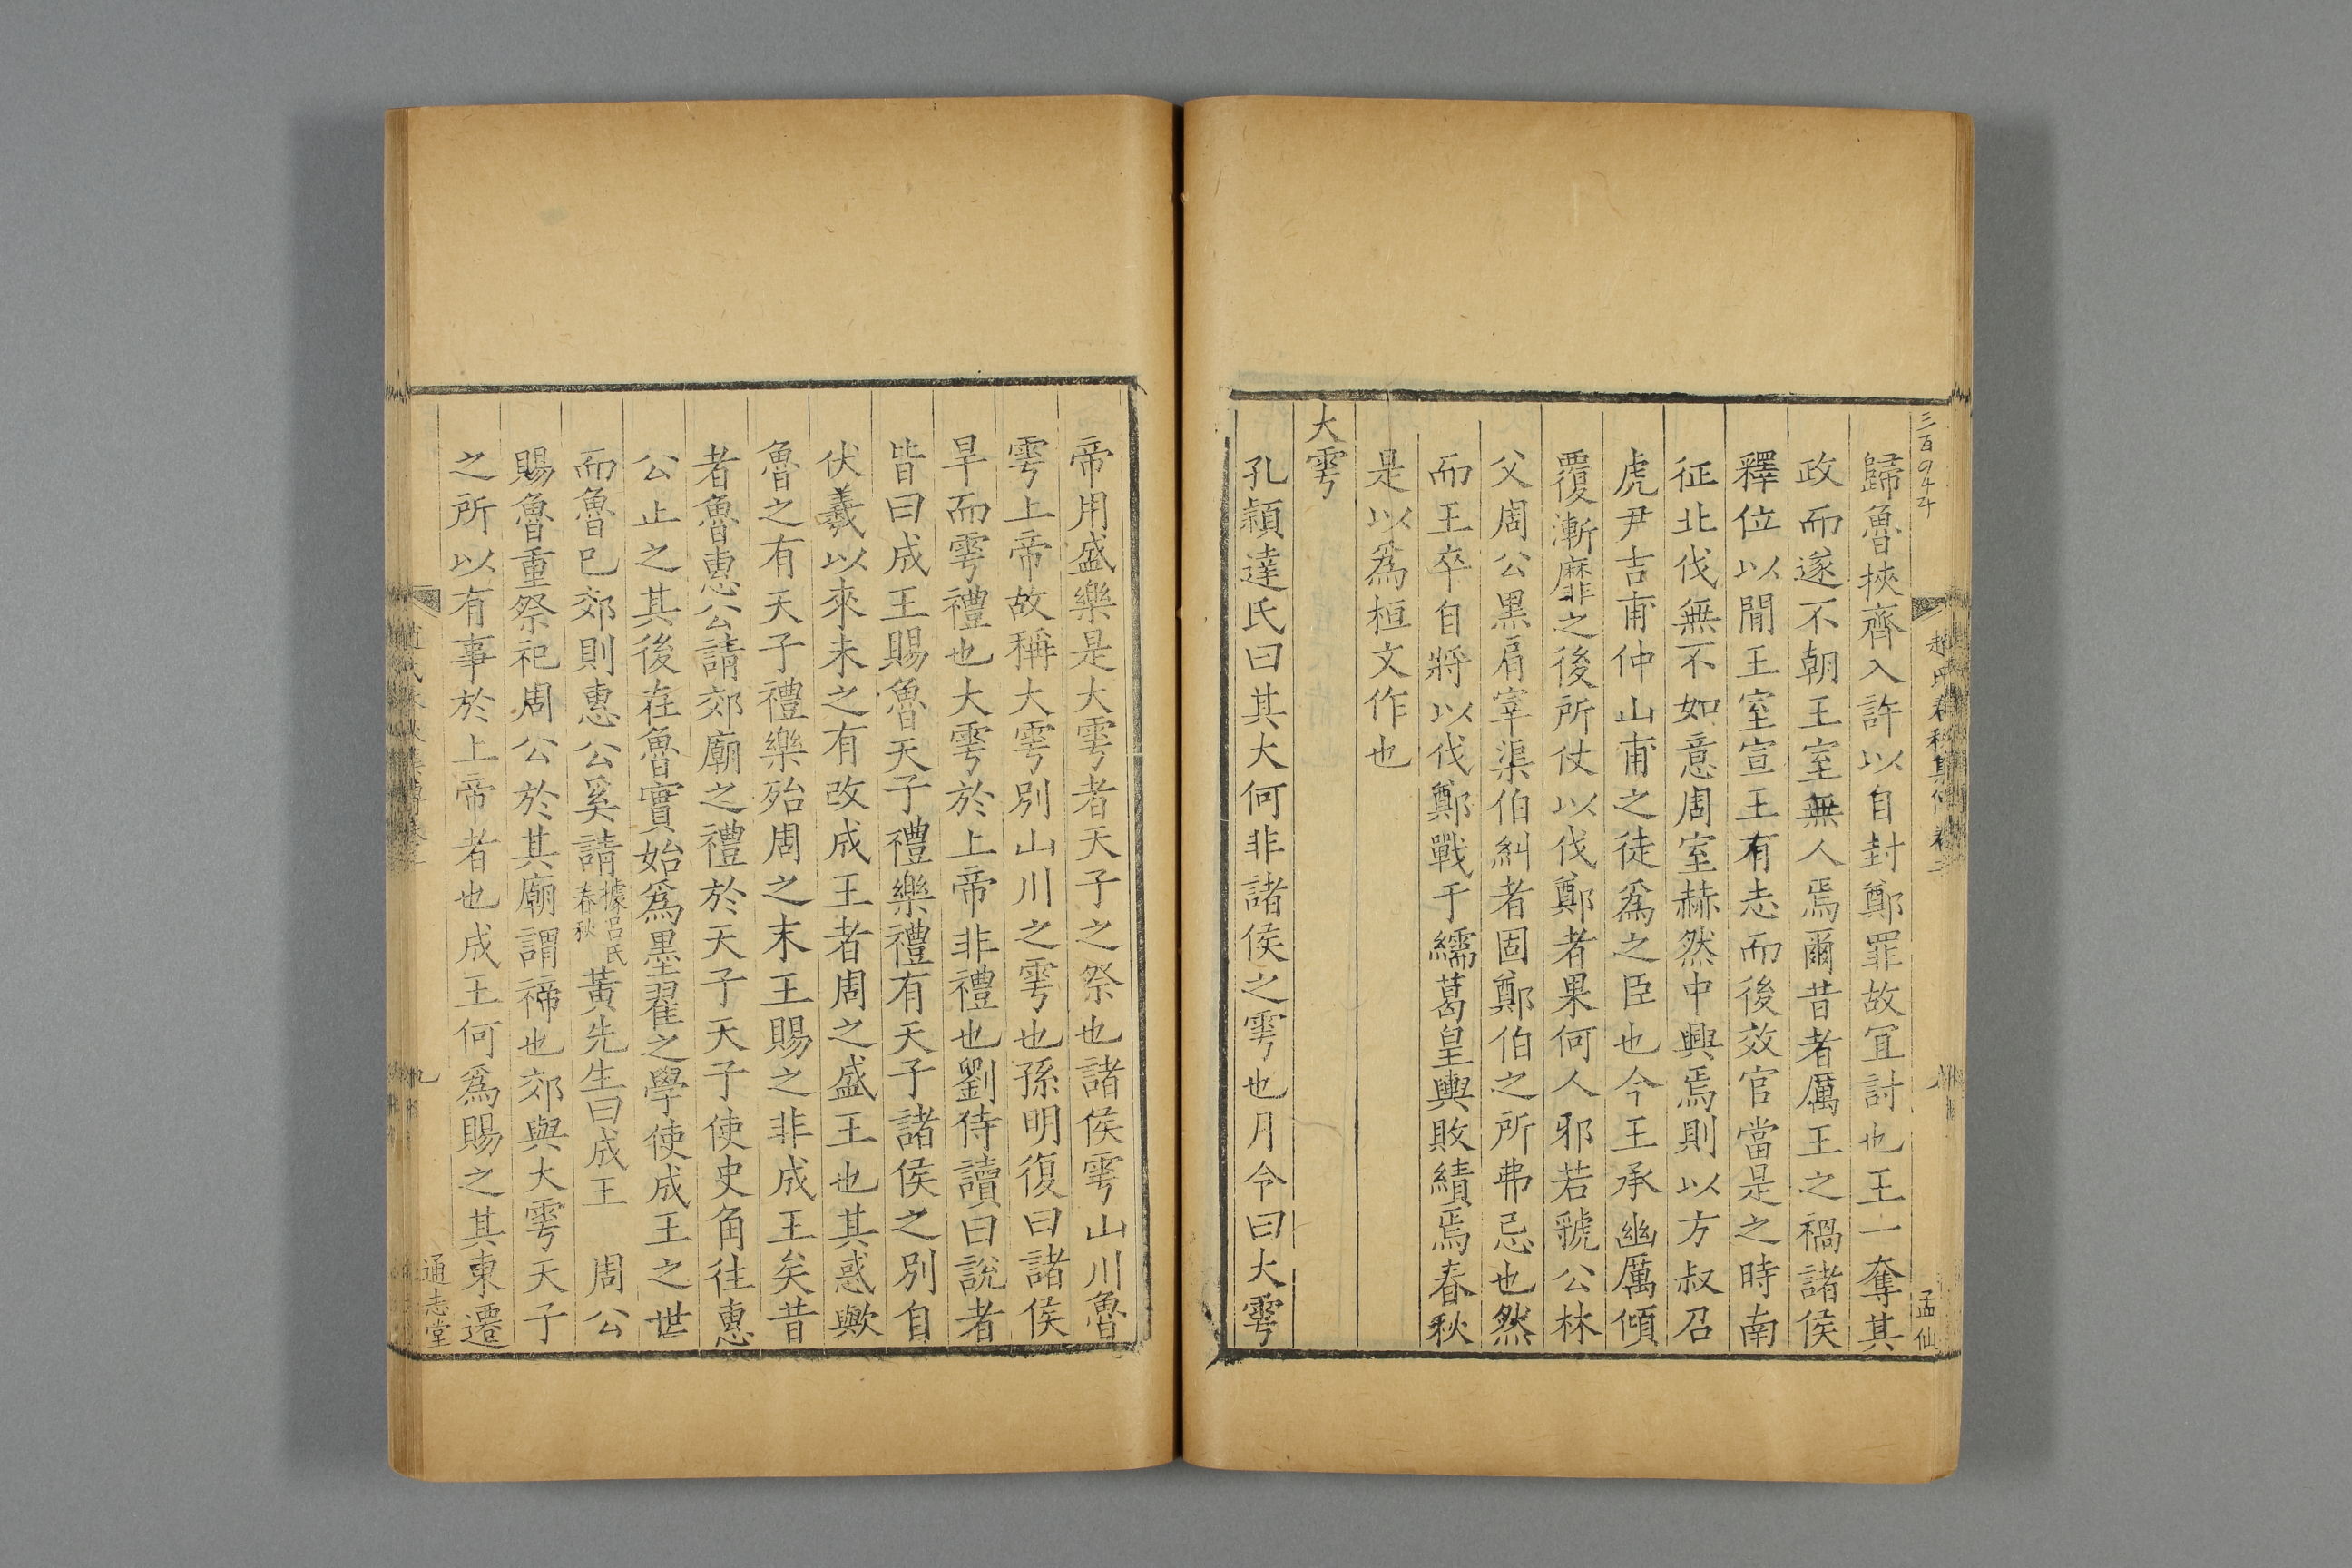 歸魯挾齊入許以自封鄭罪故宜討也王一奪其
政而遂不朝王室無人焉爾昔者厲王之禍諸侯
釋位以閒王室宣王有志而後效官當是之時南
征北伐無不如意周室赫然中興焉則以方叔召
虎尹吉甫仲山甫之徒爲之臣也今王承幽厲傾
覆漸靡之後所仗以伐鄭者果何人邪若虢公林
父周公黑肩宰渠伯糾者固鄭伯之所弗忌也然
而王卒自將以伐鄭戰于繻葛皇輿敗績焉春秋
是以爲桓文作也
大雩
孔穎達氏曰其大何非諸侯之雩也月令曰大雩
孟仙
帝用盛樂是大雩者天子之祭也諸侯雩山川魯
雩上帝故稱大雩別山川之雩也孫明復曰諸侯
旱而雩禮也大雩於上帝非禮也劉侍讀曰說者
皆曰成王賜魯天子禮樂禮有天子諸侯之別自
伏羲以來未之有改成王者周之盛王也其惑歟
魯之有天子禮樂殆周之末王賜之非成王矣昔
者魯惠公請郊廟之禮於天子天子使史角往惠
公止之其後在魯實始爲墨翟之學使成王之世
而魯已郊則惠公奚請據呂氏春秋黃先生曰成王 周公
賜魯重祭祀周公於其廟謂禘也郊與大雩天子
之所以有事於上帝者也成王何爲賜之其東遷
通志堂